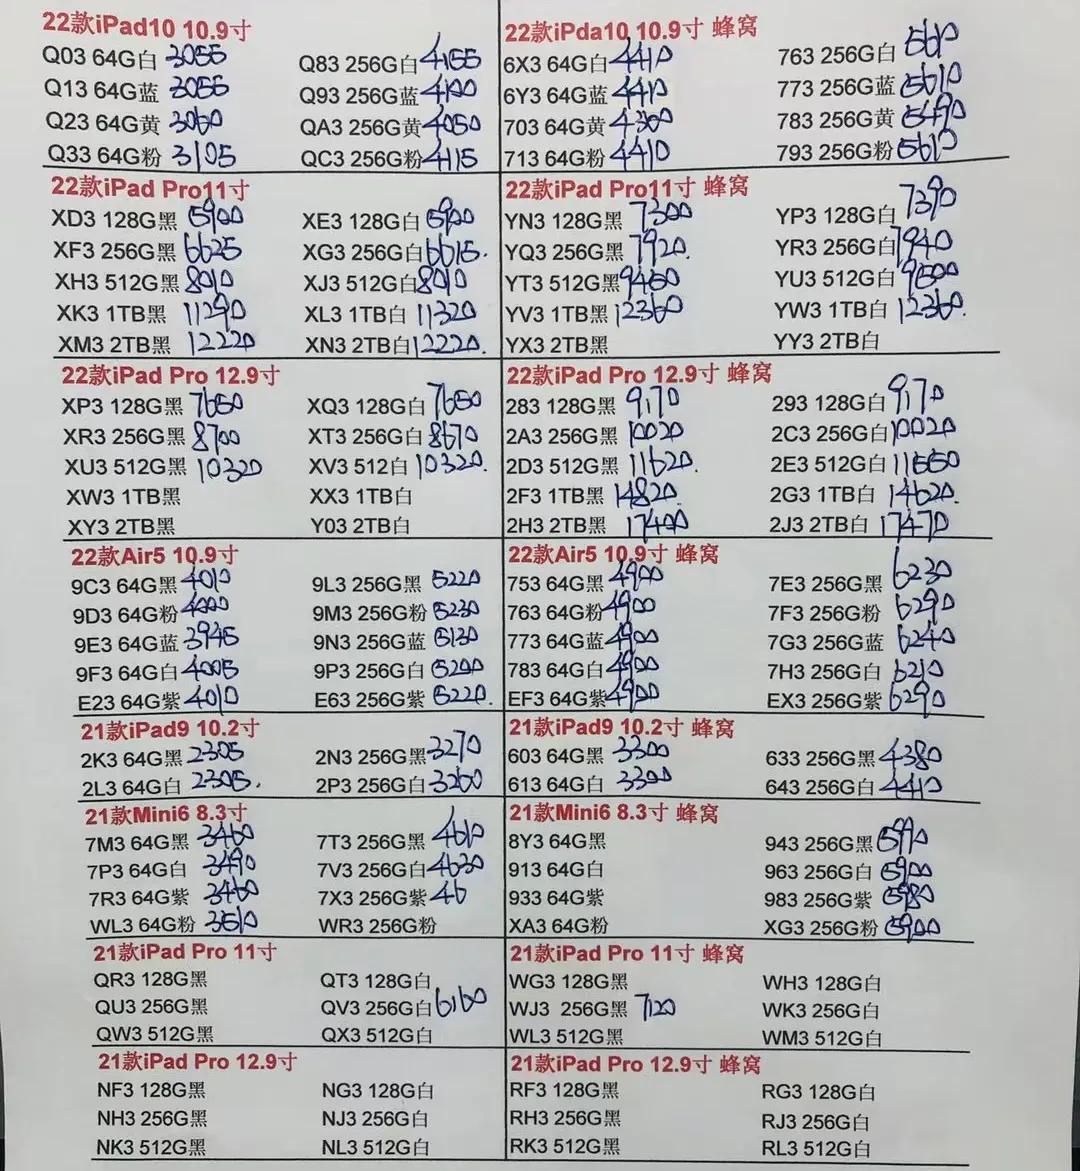 22款iPad10 10.9寸
Q03 64G白 3055 Q83 256G白 4155
Q13 64G蓝 3055 Q93 256G蓝 4100
Q23 64G黄 3060 QA3 256G黄 4050
Q33 64G粉 3105 QC3 256G粉 4115
22款iPda10 10.9寸 蜂窝
6X3 64G白 4410 763 256G白 5610
6Y3 64G蓝 4410 773 256G蓝 5610
703 64G黄 4360 783 256G黄 5490
713 64G粉 4410 793 256G粉 5610
22款iPad Pro11寸
XD3 128G黑 5900 XE3 128G白 5900
XF3 256G黑 6625 XG3 256G白 6615.
XH3 512G黑 8010 XJ3 512G白 8010
XK3 1TB黑 11290 XL3 1TB白 11320
XM3 2TB黑 12220 XN3 2TB白 12220.
22款iPad Pro11寸 蜂窝
YN3 128G黑 7300 YP3 128G白 7390
YQ3 256G黑 7920. YR3 256G白 7940
YT3 512G黑 9460 YU3 512G白 9500
YV3 1TB黑 12360 YW3 1TB白 12360.
YX3 2TB黑 YY3 2TB白
22款iPad Pro 12.9寸
XP3 128G黑 7650 XQ3 128G白 7650
XR3 256G黑 8700 XT3 256G白 8670
XU3 512G黑 10320 XV3 512白 10320.
XW3 1TB黑 XX3 1TB白
XY3 2TB黑 Y03 2TB白
22款iPad Pro 12.9寸 蜂窝
283 128G黑 9170 293 128G白 9170
2A3 256G黑 10020 2C3 256G白 10020
2D3 512G黑 11620. 2E3 512G白 11550
2F3 1TB黑 14820. 2G3 1TB白 14620.
2H3 2TB黑 17400 2J3 2TB白 17470
22款Air5 10.9寸
9C3 64G黑 4010 9L3 256G黑 5220
9D3 64G粉 4000 9M3 256G粉 5230
9E3 64G蓝 3945 9N3 256G蓝 5130
9F3 64G白 4005 9P3 256G白 5200
E23 64G紫 4010 E63 256G紫 5220.
22款Air5 10.9寸 蜂窝
753 64G黑 4900 7E3 256G黑 6230
763 64G粉 4900 7F3 256G粉 6290
773 64G蓝 4900 7G3 256G蓝 6240
783 64G白 4900 7H3 256G白 6210
EF3 64G紫 4900 EX3 256G紫 6290
21款iPad9 10.2寸
2K3 64G黑 2305 2N3 256G黑 3270
2L3 64G白 2305. 2P3 256G白 3260
21款iPad9 10.2寸 蜂窝
603 64G黑 3300 633 256G黑 4380
613 64G白 3300 643 256G白 4410
21款Mini6 8.3寸
7M3 64G黑 3460 7T3 256G黑 4610
7P3 64G白 3490 7V3 256G白 4630
7R3 64G紫 3460 7X3 256G紫
WL3 64G粉 3510 WR3 256G粉
21款Mini6 8.3寸 蜂窝
8Y3 64G黑 943 256G黑 5990
913 64G白 963 256G白 5900
933 64G紫 983 256G紫 5980
XA3 64G粉 XG3 256G粉 5900
21款iPad Pro 11寸
QR3 128G黑 QT3 128G白
QU3 256G黑 QV3 256G白 6160
QW3 512G黑 QX3 512G白
21款iPad Pro 11寸 蜂窝
WG3 128G黑 WH3 128G白
WJ3 256G黑 7120 WK3 256G白
WL3 512G黑 WM3 512G白
21款iPad Pro 12.9寸
NF3 128G黑 NG3 128G白
NH3 256G黑 NJ3 256G白
NK3 512G黑 NL3 512G白
21款iPad Pro 12.9寸 蜂窝
RF3 128G黑 RG3 128G白
RH3 256G黑 RJ3 256G白
RK3 512G黑 RL3 512G白